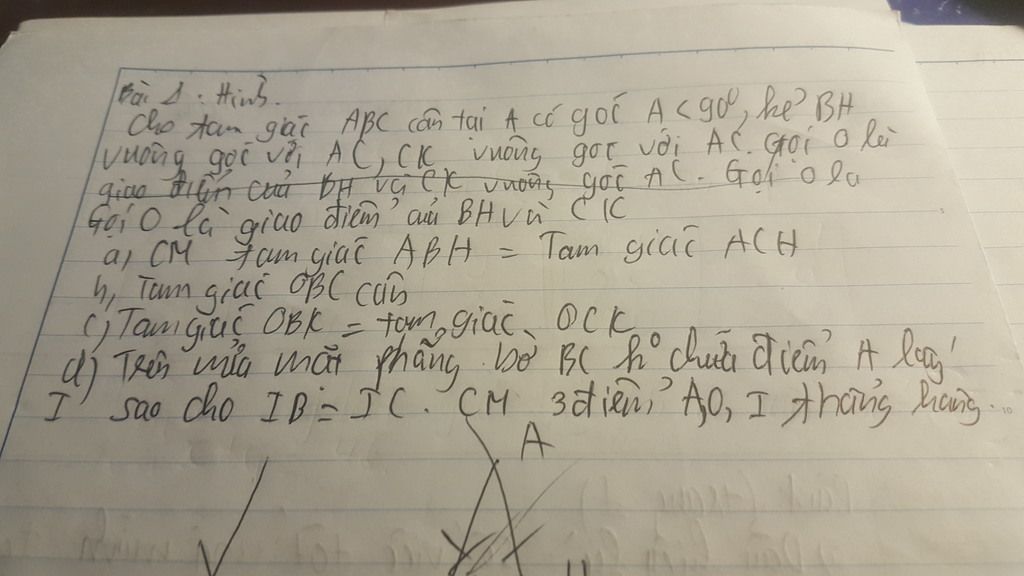 Bài 1: Hình.
Cho tam giác ABC cân tại A có góc A < 90⁰, kẻ BH
vuông góc với AC, CK vuông góc với AC. Gọi O là
giao điểm của BH và CK vuông góc AC. Gọi O la
Gọi O là giao điểm của BH và CK
a, CM tam giác ABH = Tam giác ACH
b, Tam giác OBC cân
c) Tam giác OBK = tam giác OCK
d) Trên nửa mặt phẳng bờ BC ko chứa điểm A lấy
I sao cho IB = IC. CM 3 điểm A, O, I thẳng hàng...
A